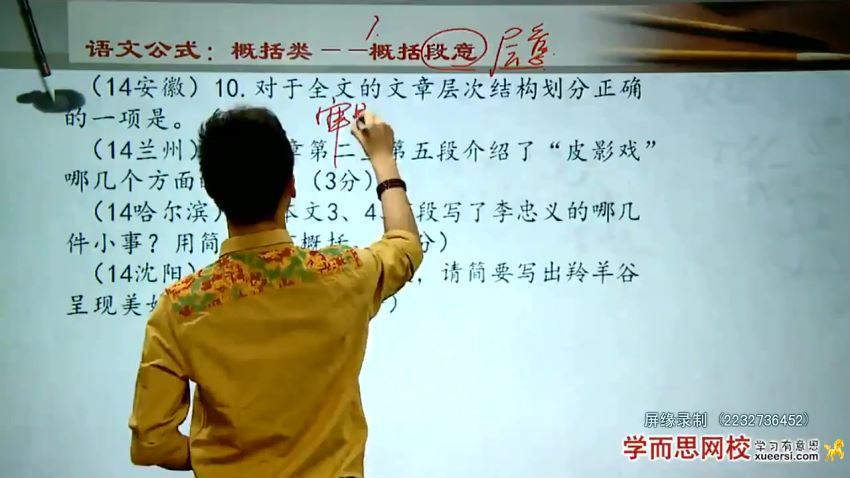 语文公式：概括类——概括段意 层意
（14安徽）10.对于全文的文章层次结构划分正确
的一项是。（
（14兰州） 章第二至第五段介绍了“皮影戏”
哪几个方面的 （3分）
（14哈尔滨） 本文3、4 段写了李忠义的哪几
件小事？用简 概括。 分）
（14沈阳） ，请简要写出羚羊谷
呈现美 ）
审
屏缘录制（2232736452）
学而思网校 学习有意思
xueersi.com